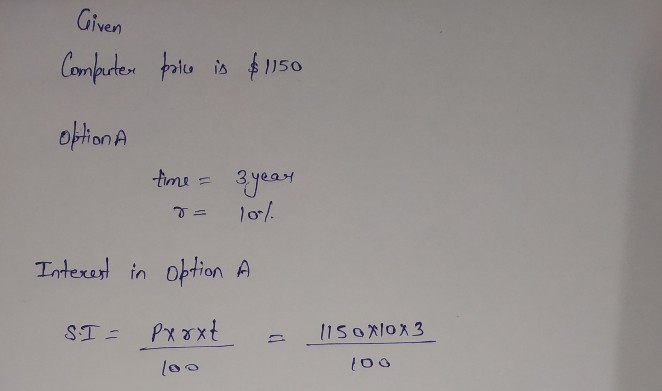 Given
Computer price is $1150
Option A
time = 3 year
r = 10%
Interest in Option A
S.I = P×r×t / 100 = 1150×10×3 / 100